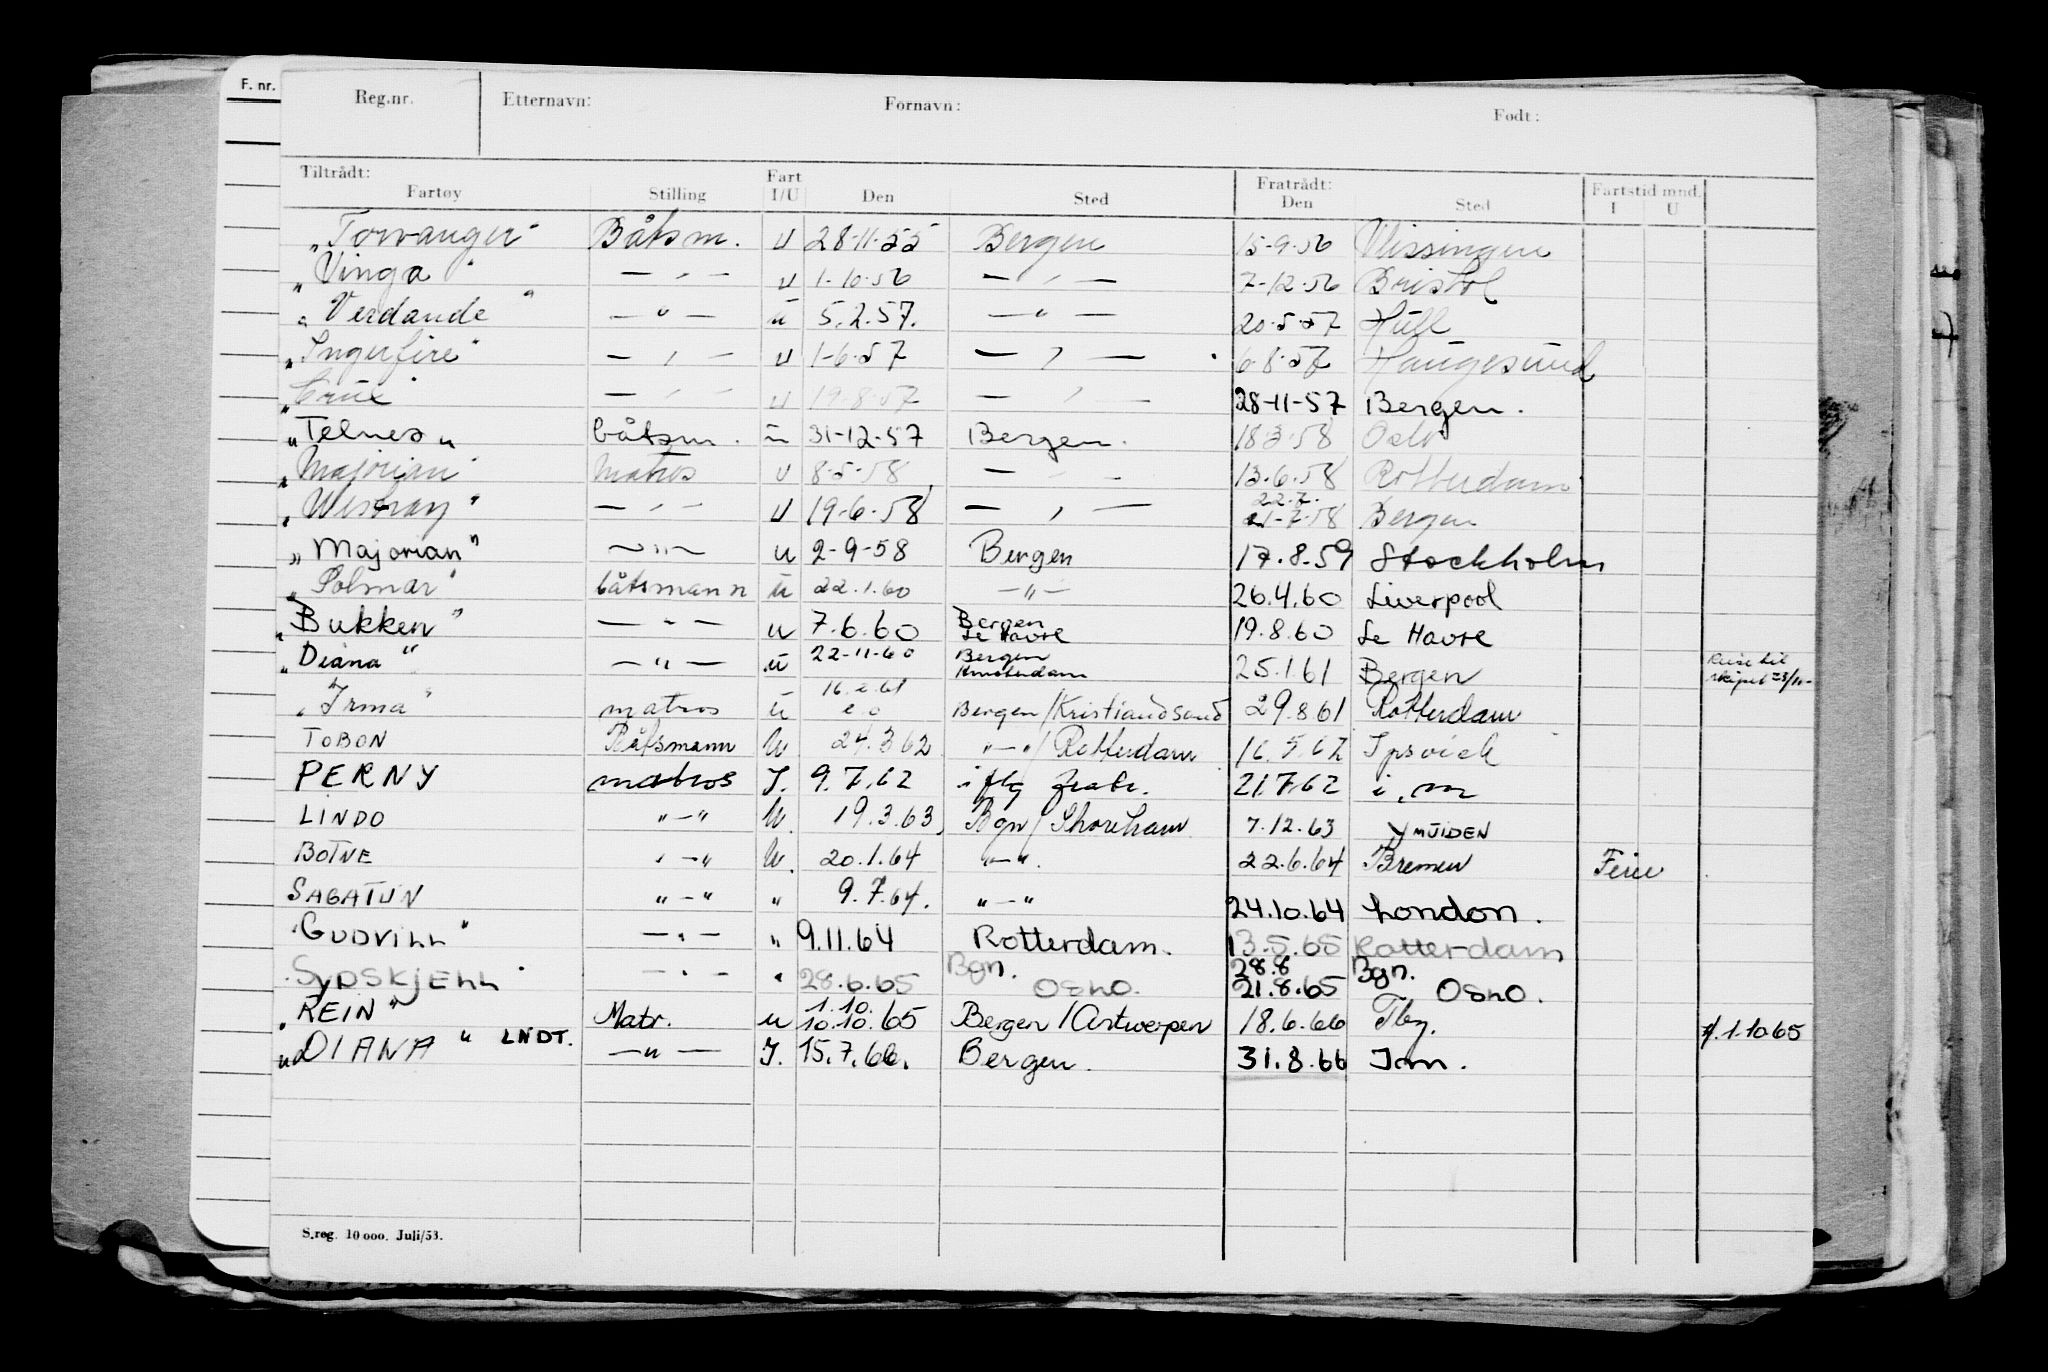 F. nr.
Reg.nr. Etternavn: Fornavn: Født:
Tiltrådt: Fart Fratrådt: Fartstid mnd.
Fartøy Stilling I/U Den Sted Den Sted I U
"Torvanger" Båtsm. u 28-11-55 Bergen 15-9-56 Vlissingen
"Vinga" — , — u 1-10-56 — , — 7-12-56 Bristol
"Verdande" — " — u 5.2.57. — " — 20-5-57 Hull
"Ingerfire" — , — u 1-6-57 — , — 6-8-57 Haugesund
— , — u 19-8-57 — , — 28-11-57 Bergen.
"Telnes" båtsm. u 31-12-57 Bergen. 18-3-58 Oslo
"Majorian" matros u 8-5-58 — , — 13-6-58 Rotterdam
"Westray" — , — u 19-6-58 — , — 22.7. 21-7-58 Bergen
"Majorian" — " — u 2-9-58 Bergen 17.8.59 Stockholm
"Solmar" båtsmann u 22.1.60 — " — 26.4.60 Liverpool
"Bukken" — " — u 7.6.60 Bergen Le Havre 19.8.60 Le Havre
"Diana" — " — u 22-11-60 Bergen Amsterdam 25.1.61 Bergen Reise til skipet 23/11-
"Irma" matros u 16.2.61 Bergen/Kristiandsand 29.8.61 Rotterdam
TOBON Båtsmann U 24.3.62 " — "/Rotterdam 16.5.62 Ipsvick
PERNY matros I. 9.7.62 i flg fratr. 21.7.62 i.m
LINDO " — " U. 19.3.63 Bgn/Shoreham 7.12.63 YMUIDEN
BOTNE " — " U. 20.1.64 " — ". 22.6.64 Bremen Ferie
SAGATUN " — " " 9.7.64. " — " 24.10.64 London.
"GUDVILL" — " — " 9.11.64 Rotterdam. 13.5.65 Rotterdam
"SYDSKJELL" — " — " 28.6.65 Bgn. OSLO. 28.8 21.8.65 Bgn. OSLO.
"REIN" Matr. u 1.10. 10.10.65 Bergen/Antwerpen 18.6.66 Tbg. 1.10 65
"DIANA" LNDT. — " — I. 15.7.66. Bergen. 31.8.66 Im.
S.reg. 10 000. Juli/53.